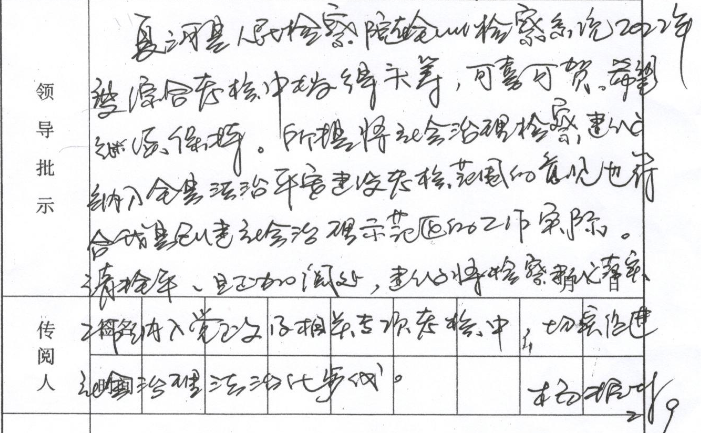 领导批示
夏河县人民检察院在全州检察系统2022年
度综合考核中拔得头筹，可喜可贺。希望
继续保持。所提将社会治理检察建议
纳入全县法治平安建设考核范围的意见也符
合我县创建社会治理示范区的工作实际。
请拴年、旦正加阅处，建议将检察建议落实
纳入党政及相关专项考核中，切实促进
社会治理法治化步伐。
传阅人
2/9